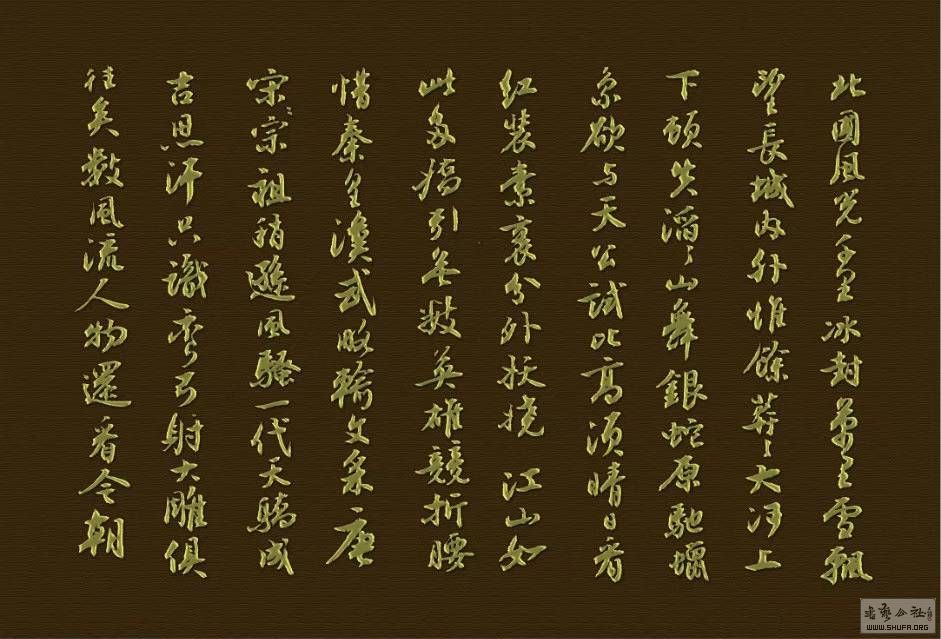 北國風光千里冰封萬里雪飄
望長城內外惟餘莽〻大河上
下頓失滔〻山舞銀蛇原馳蠟
象欲与天公試比高須晴日看
红裝素裹分外妖嬈 江山如
此多嬌引無數英雄競折腰
惜秦皇漢武略輸文采唐
宋宗祖稍遜風騷一代天驕成
吉思汗只識彎弓射大雕俱
往矣數風流人物還看今朝
書藝公社
WWW.SHUFA.ORG